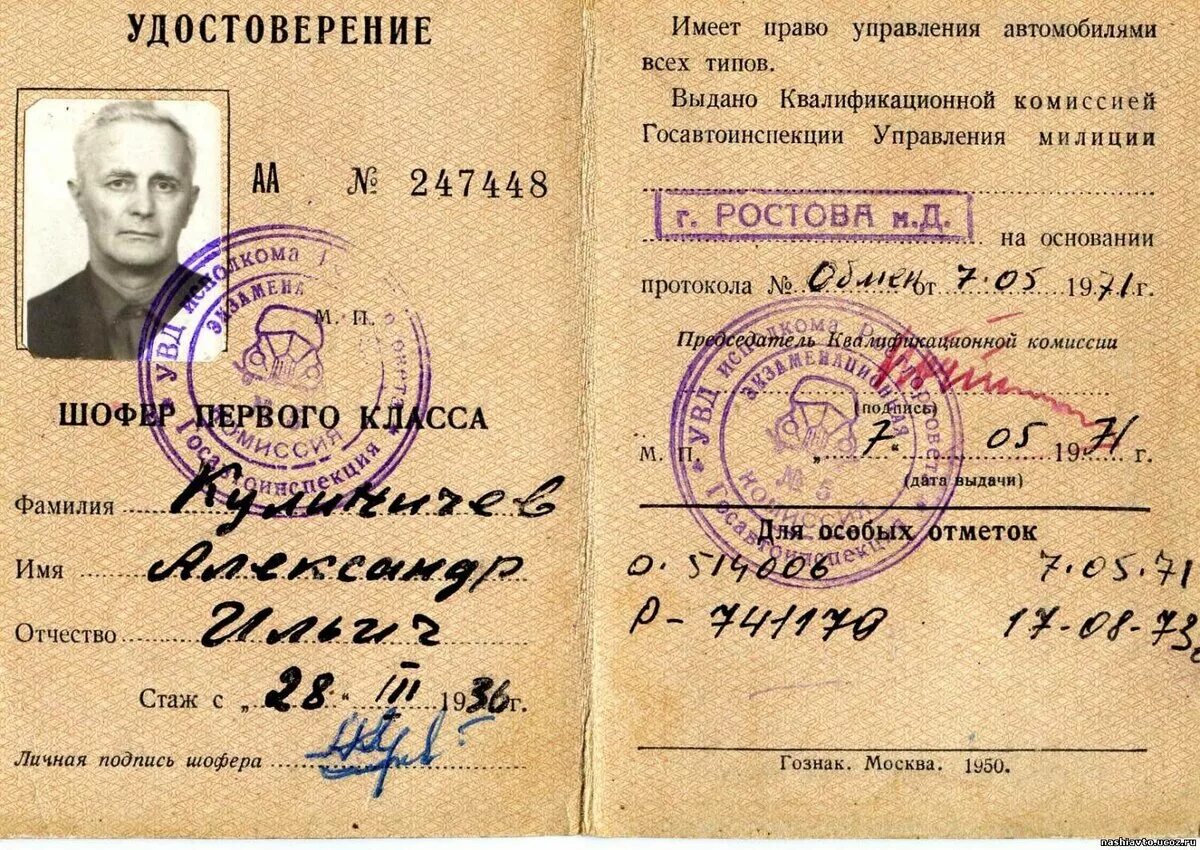 УДОСТОВЕРЕНИЕ
АА № 247448
М. П.
УВД исполкома
ЭКЗАМЕНА
КОМИССИЯ
Госавтоинспекция
ШОФЕР ПЕРВОГО КЛАССА
Фамилия Кулиничев
Имя Александр
Отчество Ильич
Стаж с „28“ III 1936г.
Личная подпись шофера
Имеет право управления автомобилями
всех типов.
Выдано Квалификационной комиссией
Госавтоинспекции Управления милиции
г. РОСТОВА н.Д.
на основании
протокола № Обмен от 7.05 1971г.
Председатель Квалификационной комиссии
(подпись)
М. П. „7“ 05 1971 г.
(дата выдачи)
УВД исполкома
ЭКЗАМЕНАЦИОННАЯ
№ 5
КОМИССИЯ
Госавтоинспекции
Для особых отметок
О. 514006 7.05.71
Р- 741179 17-08-73
Гознак. Москва. 1950.
nashiavto.ucoz.ru